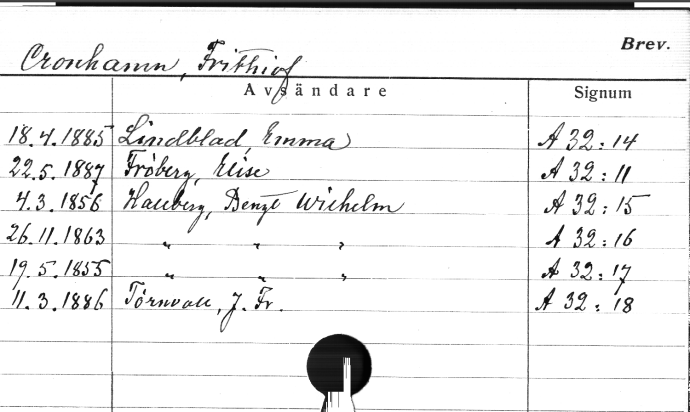 Brev.
Cronhamn, Frithiof
Avsändare Signum
18.4.1885 Lindblad, Emma A 32:14
22.5.1887 Fröberg, Elise A 32:11
4.3.1856 Hallberg, Bengt Wilhelm A 32:15
26.11.1863 " " " A 32:16
19.5.1855 " " " A 32:17
11.3.1886 Törnvall, J. Fr. A 32:18